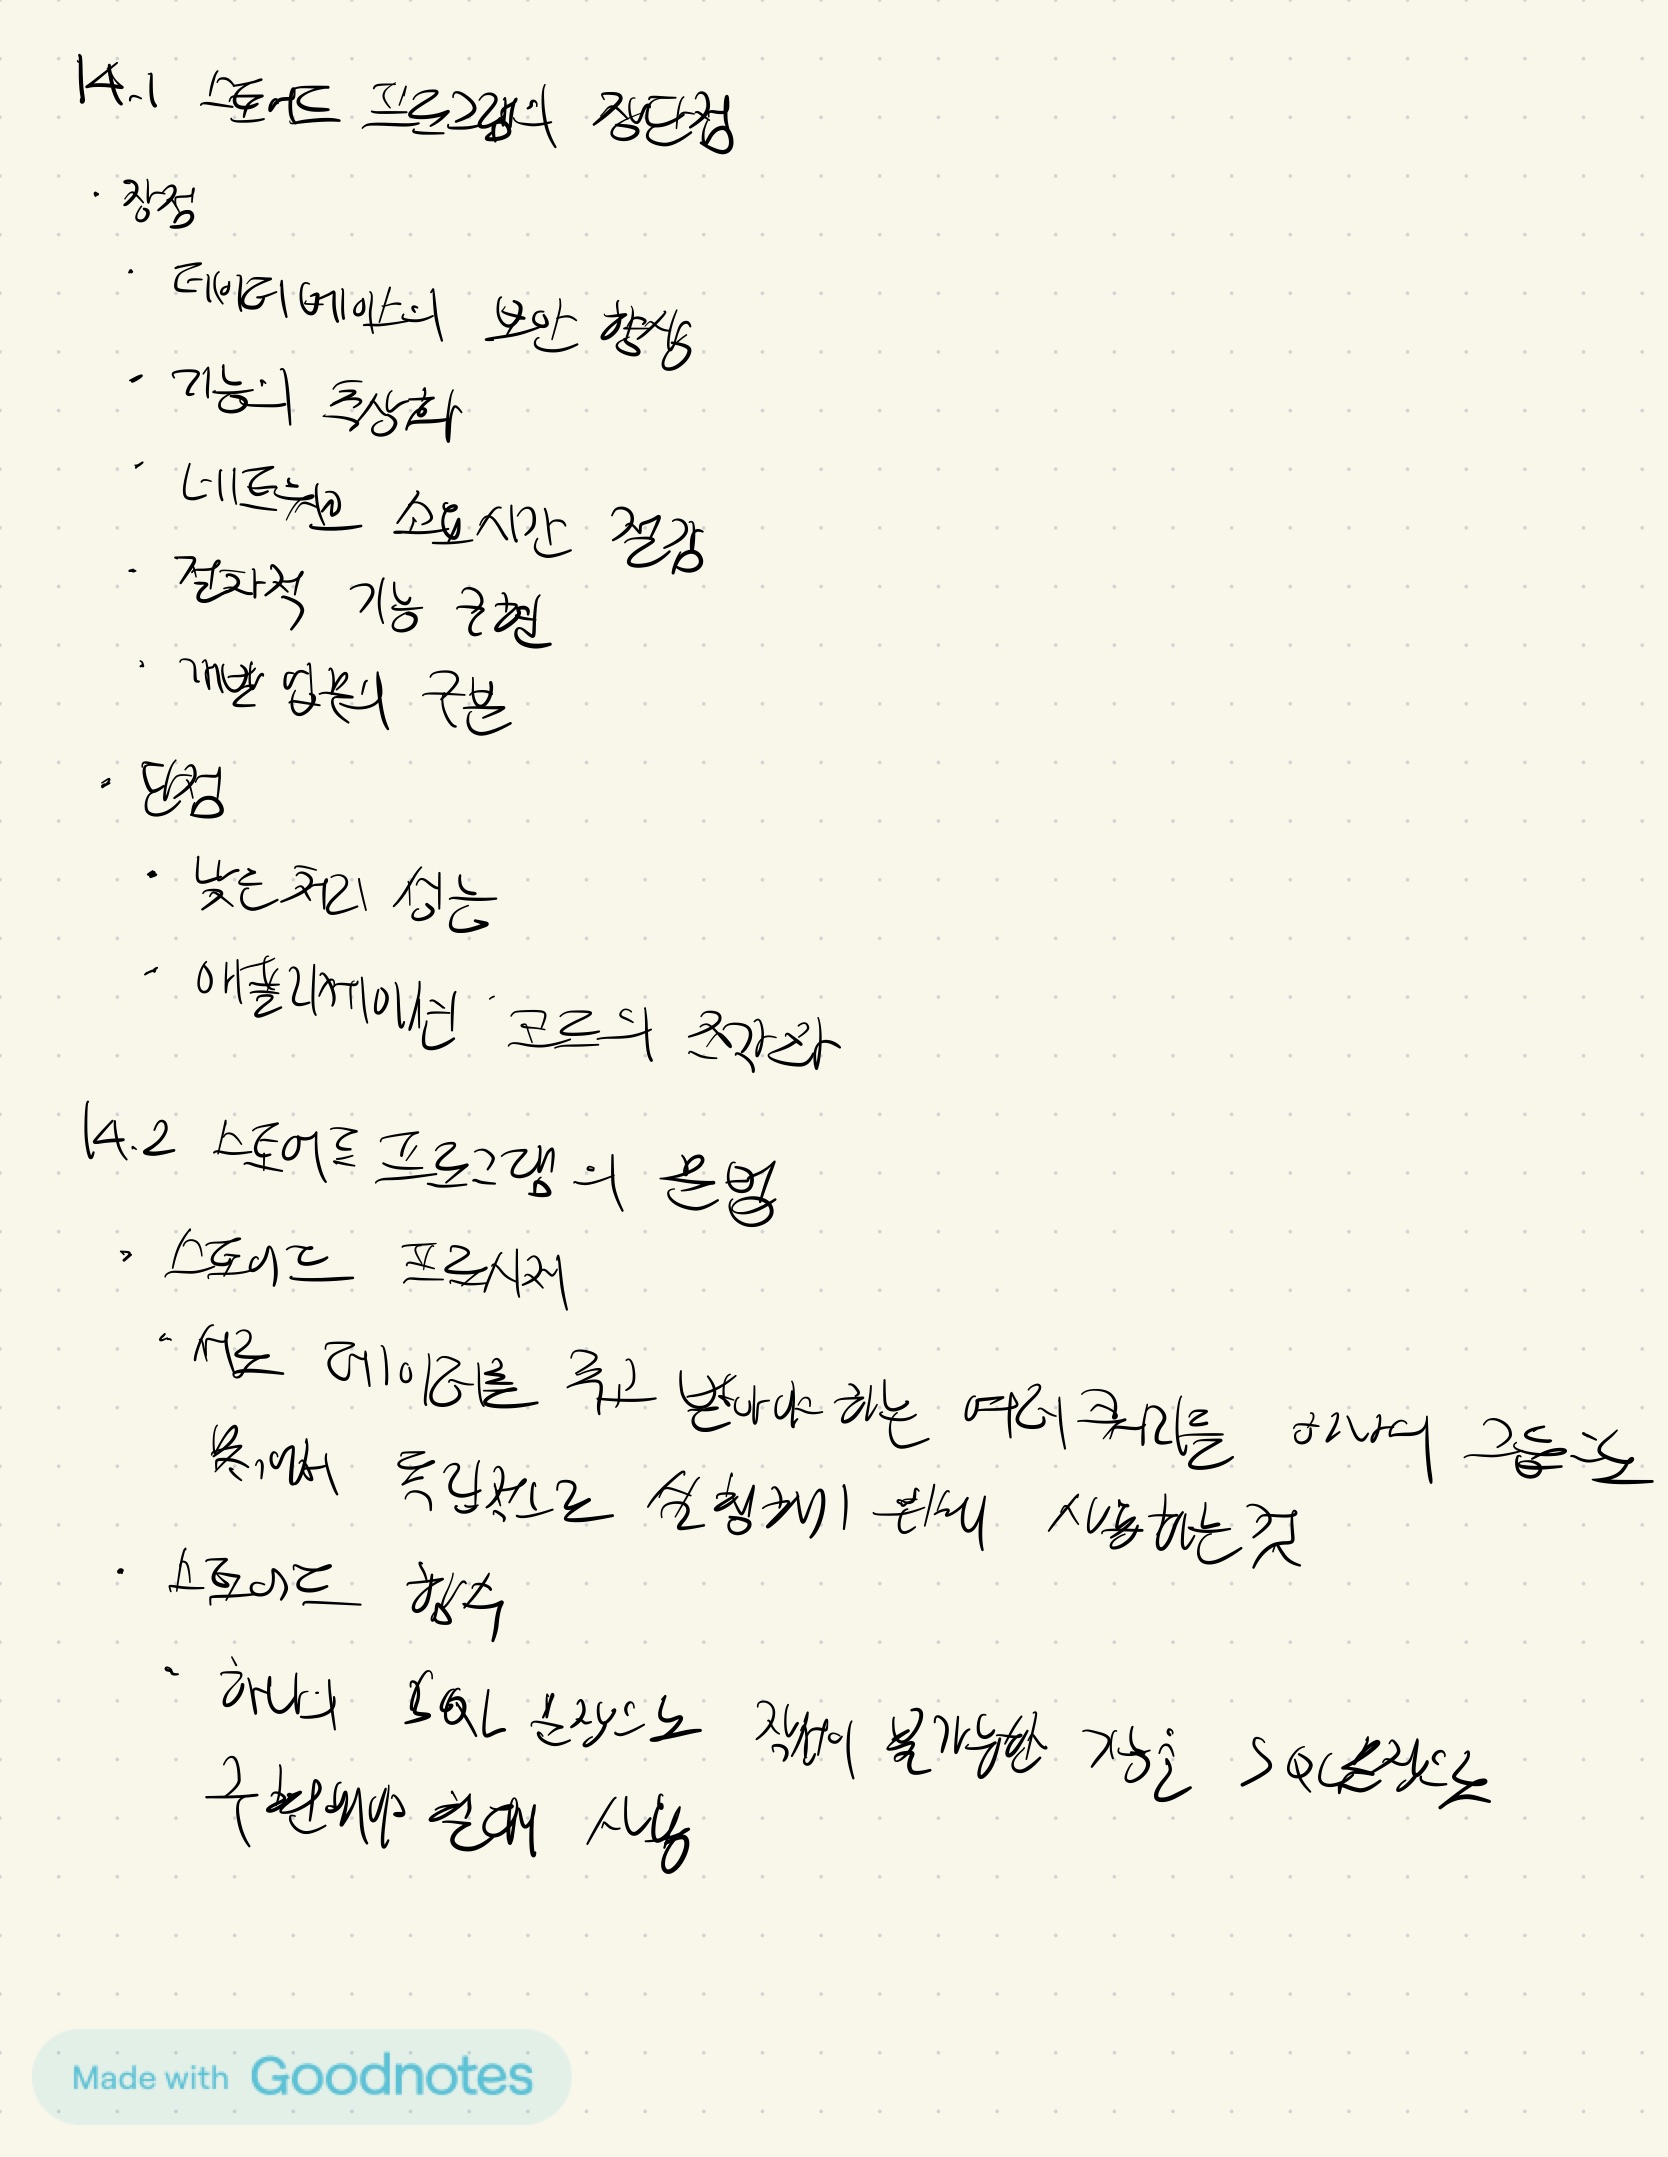 14.1 스토어드 프로그램의 장단점
· 장점
· 데이터베이스의 보안 향상
· 기능의 추상화
· 네트워크 소요시간 절감
· 절차적 기능 구현
· 개발 업무의 구분
· 단점
· 낮은 처리 성능
· 애플리케이션 코드의 조각화
14.2 스토어드 프로그램의 문법
· 스토어드 프로시저
· 서로 데이터를 주고 받아야 하는 여러 쿼리를 하나의 그룹으로
묶어서 독립적으로 실행하기 위해 사용하는 것
· 스토어드 함수
· 하나의 SQL 문장으로 작성이 불가능한 기능을 SQL문장으로
구현해야 할때 사용
Made with Goodnotes